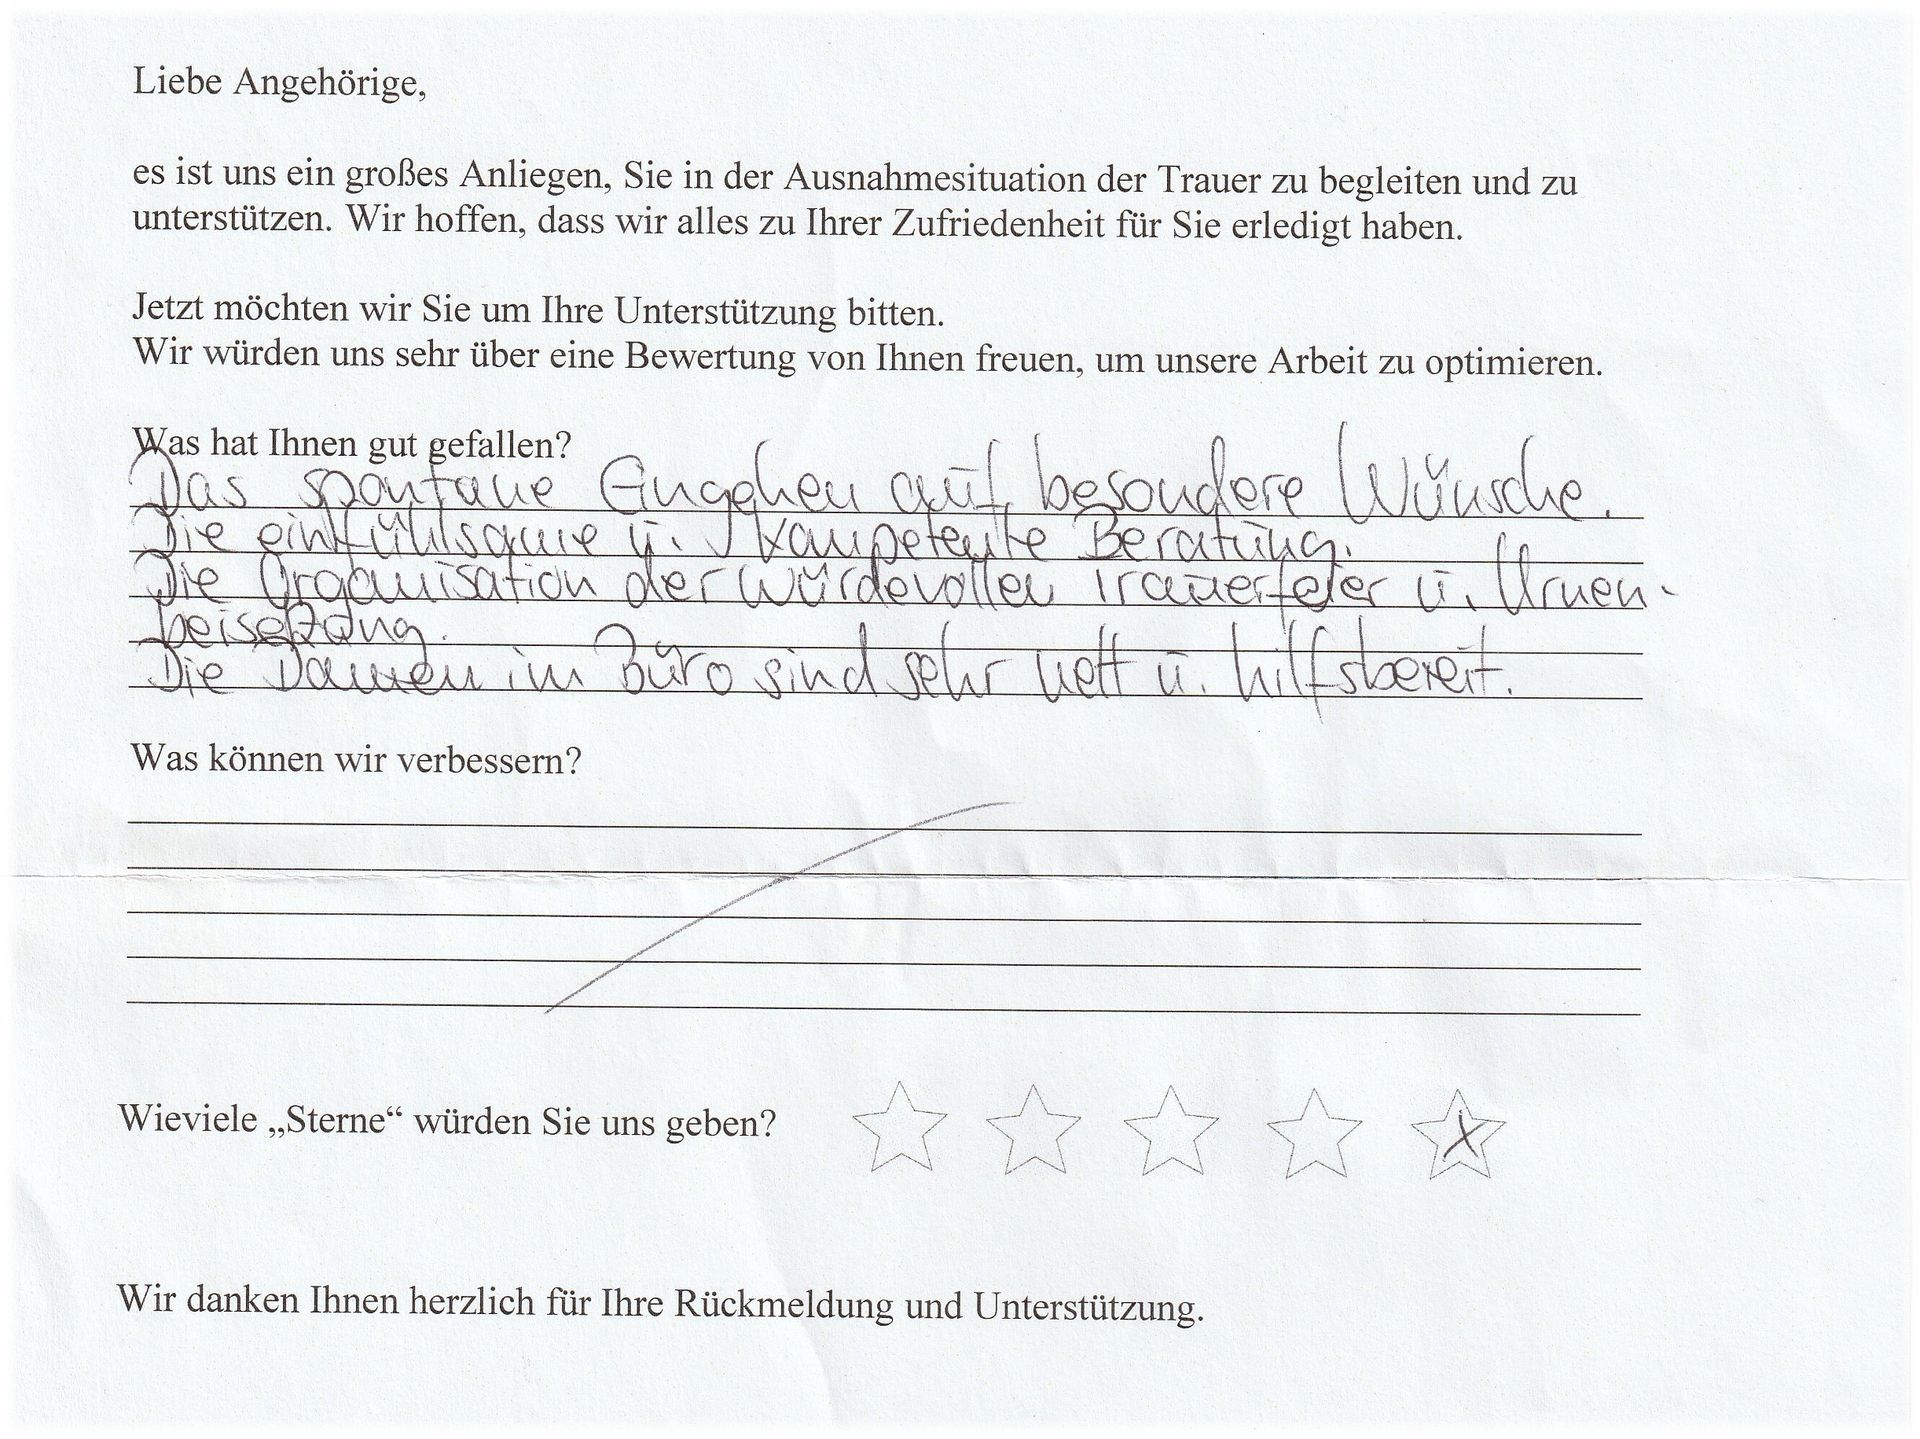 Liebe Angehörige,
es ist uns ein großes Anliegen, Sie in der Ausnahmesituation der Trauer zu begleiten und zu
unterstützen. Wir hoffen, dass wir alles zu Ihrer Zufriedenheit für Sie erledigt haben.
Jetzt möchten wir Sie um Ihre Unterstützung bitten.
Wir würden uns sehr über eine Bewertung von Ihnen freuen, um unsere Arbeit zu optimieren.
Was hat Ihnen gut gefallen?
Das spontane Eingehen auf besondere Wünsche.
Die einfühlsame u. kompetente Beratung.
Die Organisation der würdevollen Trauerfeier u. Urnen-
beisetzung.
Die Damen im Büro sind sehr nett u. hilfsbereit.
Was können wir verbessern?
Wieviele „Sterne“ würden Sie uns geben?
Wir danken Ihnen herzlich für Ihre Rückmeldung und Unterstützung.